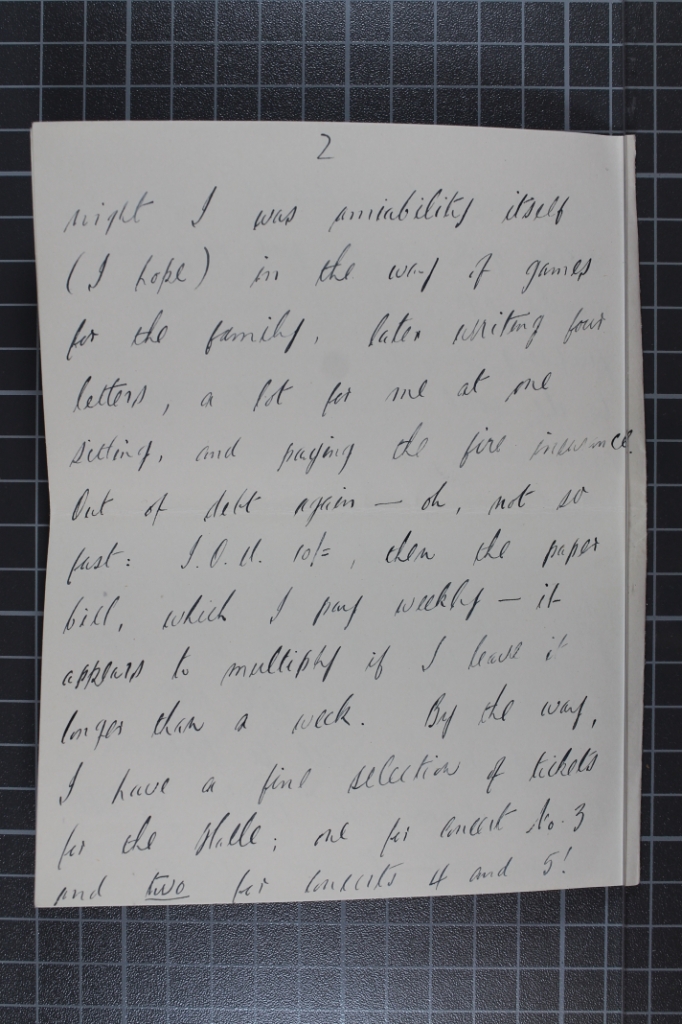 2
night I was amiability itself
(I hope) in the way of games
for the family, later writing four
letters, a lot for me at one
sitting, and paying the fire insurance.
Out of debt again — oh, not so
fast: I.O.U. 10/=, then the paper
bill, which I pay weekly — it
appears to multiply if I leave it
longer than a week. By the way,
I have a fine selection of tickets
for the Halle; one for concert No. 3
and two for concerts 4 and 5!